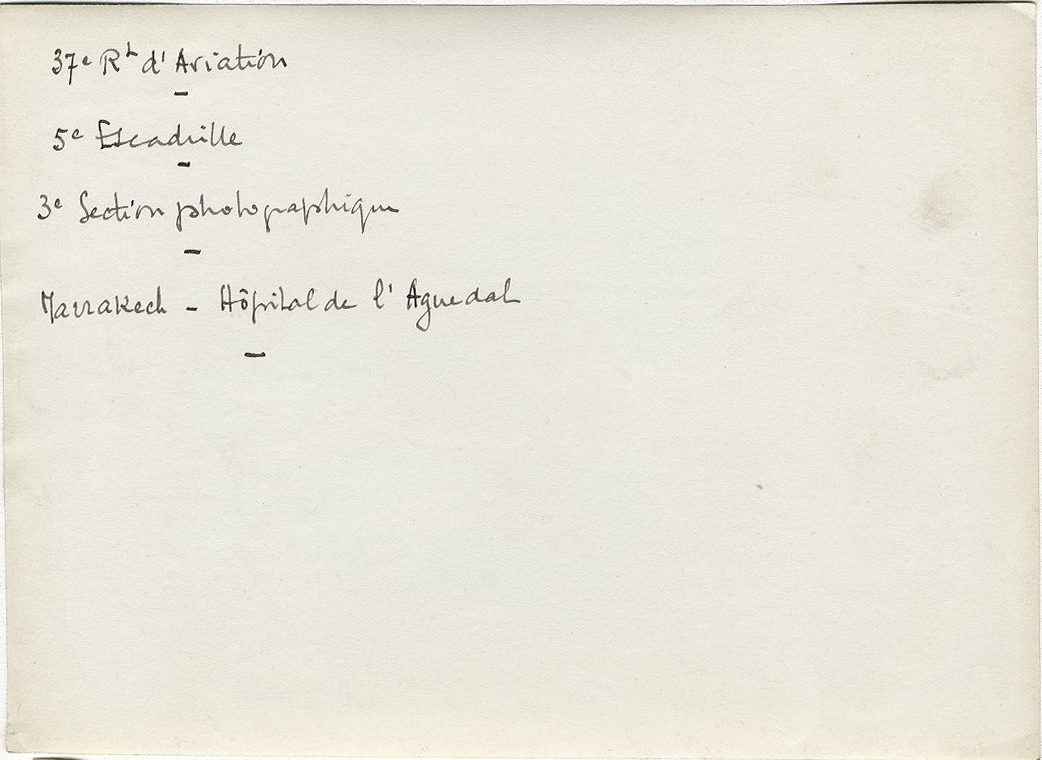 37e Rt d'Aviation
5e Escadrille
3e Section photographique
Marrakech - Hôpital de l'Aguedal